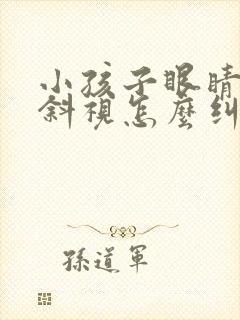 小孩子眼睛
斜視怎麼糾
孫道軍